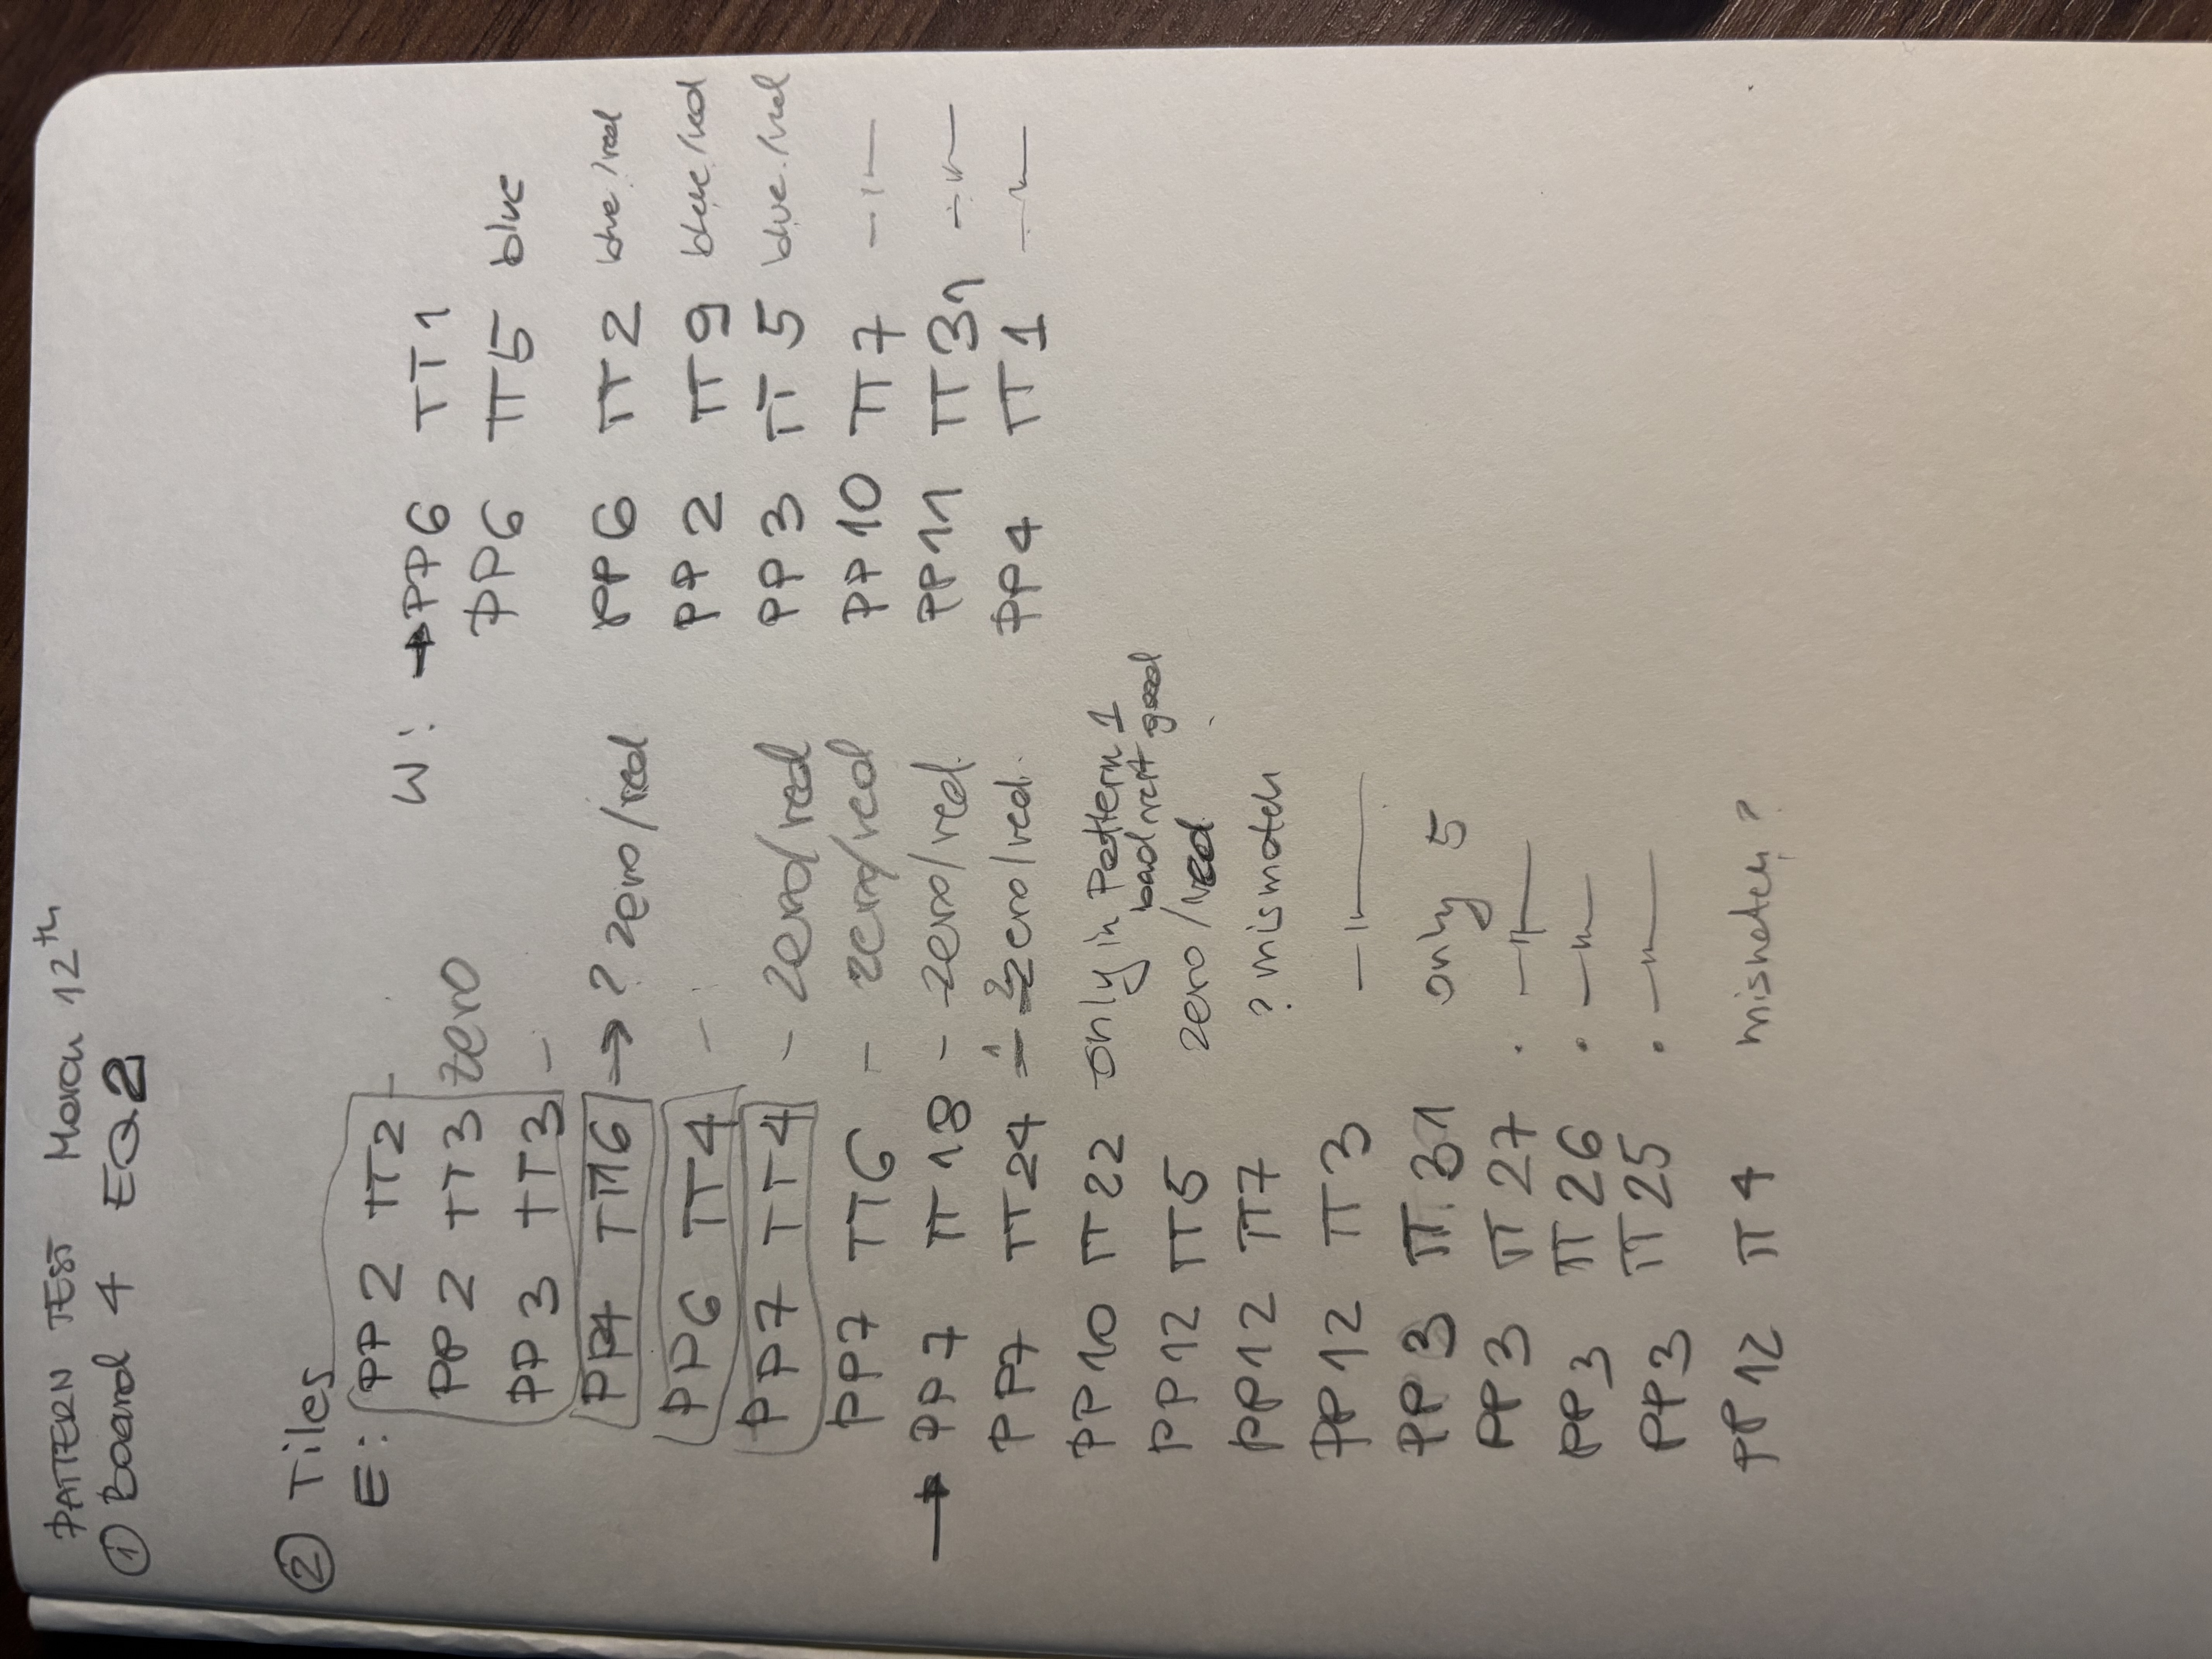 PATTERN TEST March 12th
① Board 4 EQ2
② Tiles
E: PP2 TT2 -
PP2 TT3 zero
PP3 TT3 -
PP4 TT16 → ? zero/red
PP6 TT4 -
PP7 TT4 - zero/red
PP7 TT6 - zero/red
→ PP7 TT18 - zero/red.
PP7 TT24 - zero/red.
PP10 TT22 only in Pattern 1
bad next good
PP12 TT5 zero/red
PP12 TT7 ? mismatch
PP12 TT3 -"-
PP3 TT31 only 5
PP3 TT27 · -"-
PP3 TT26 · -"-
PP3 TT25 · -"-
PP12 TT4 mismatch?
W: → PP6 TT1
PP6 TT5 blue
PP6 TT2 blue/red
PP2 TT9 blue/red
PP3 TT5 blue/red
PP10 TT7 -"-
PP11 TT31 -"-
PP4 TT1 -"-